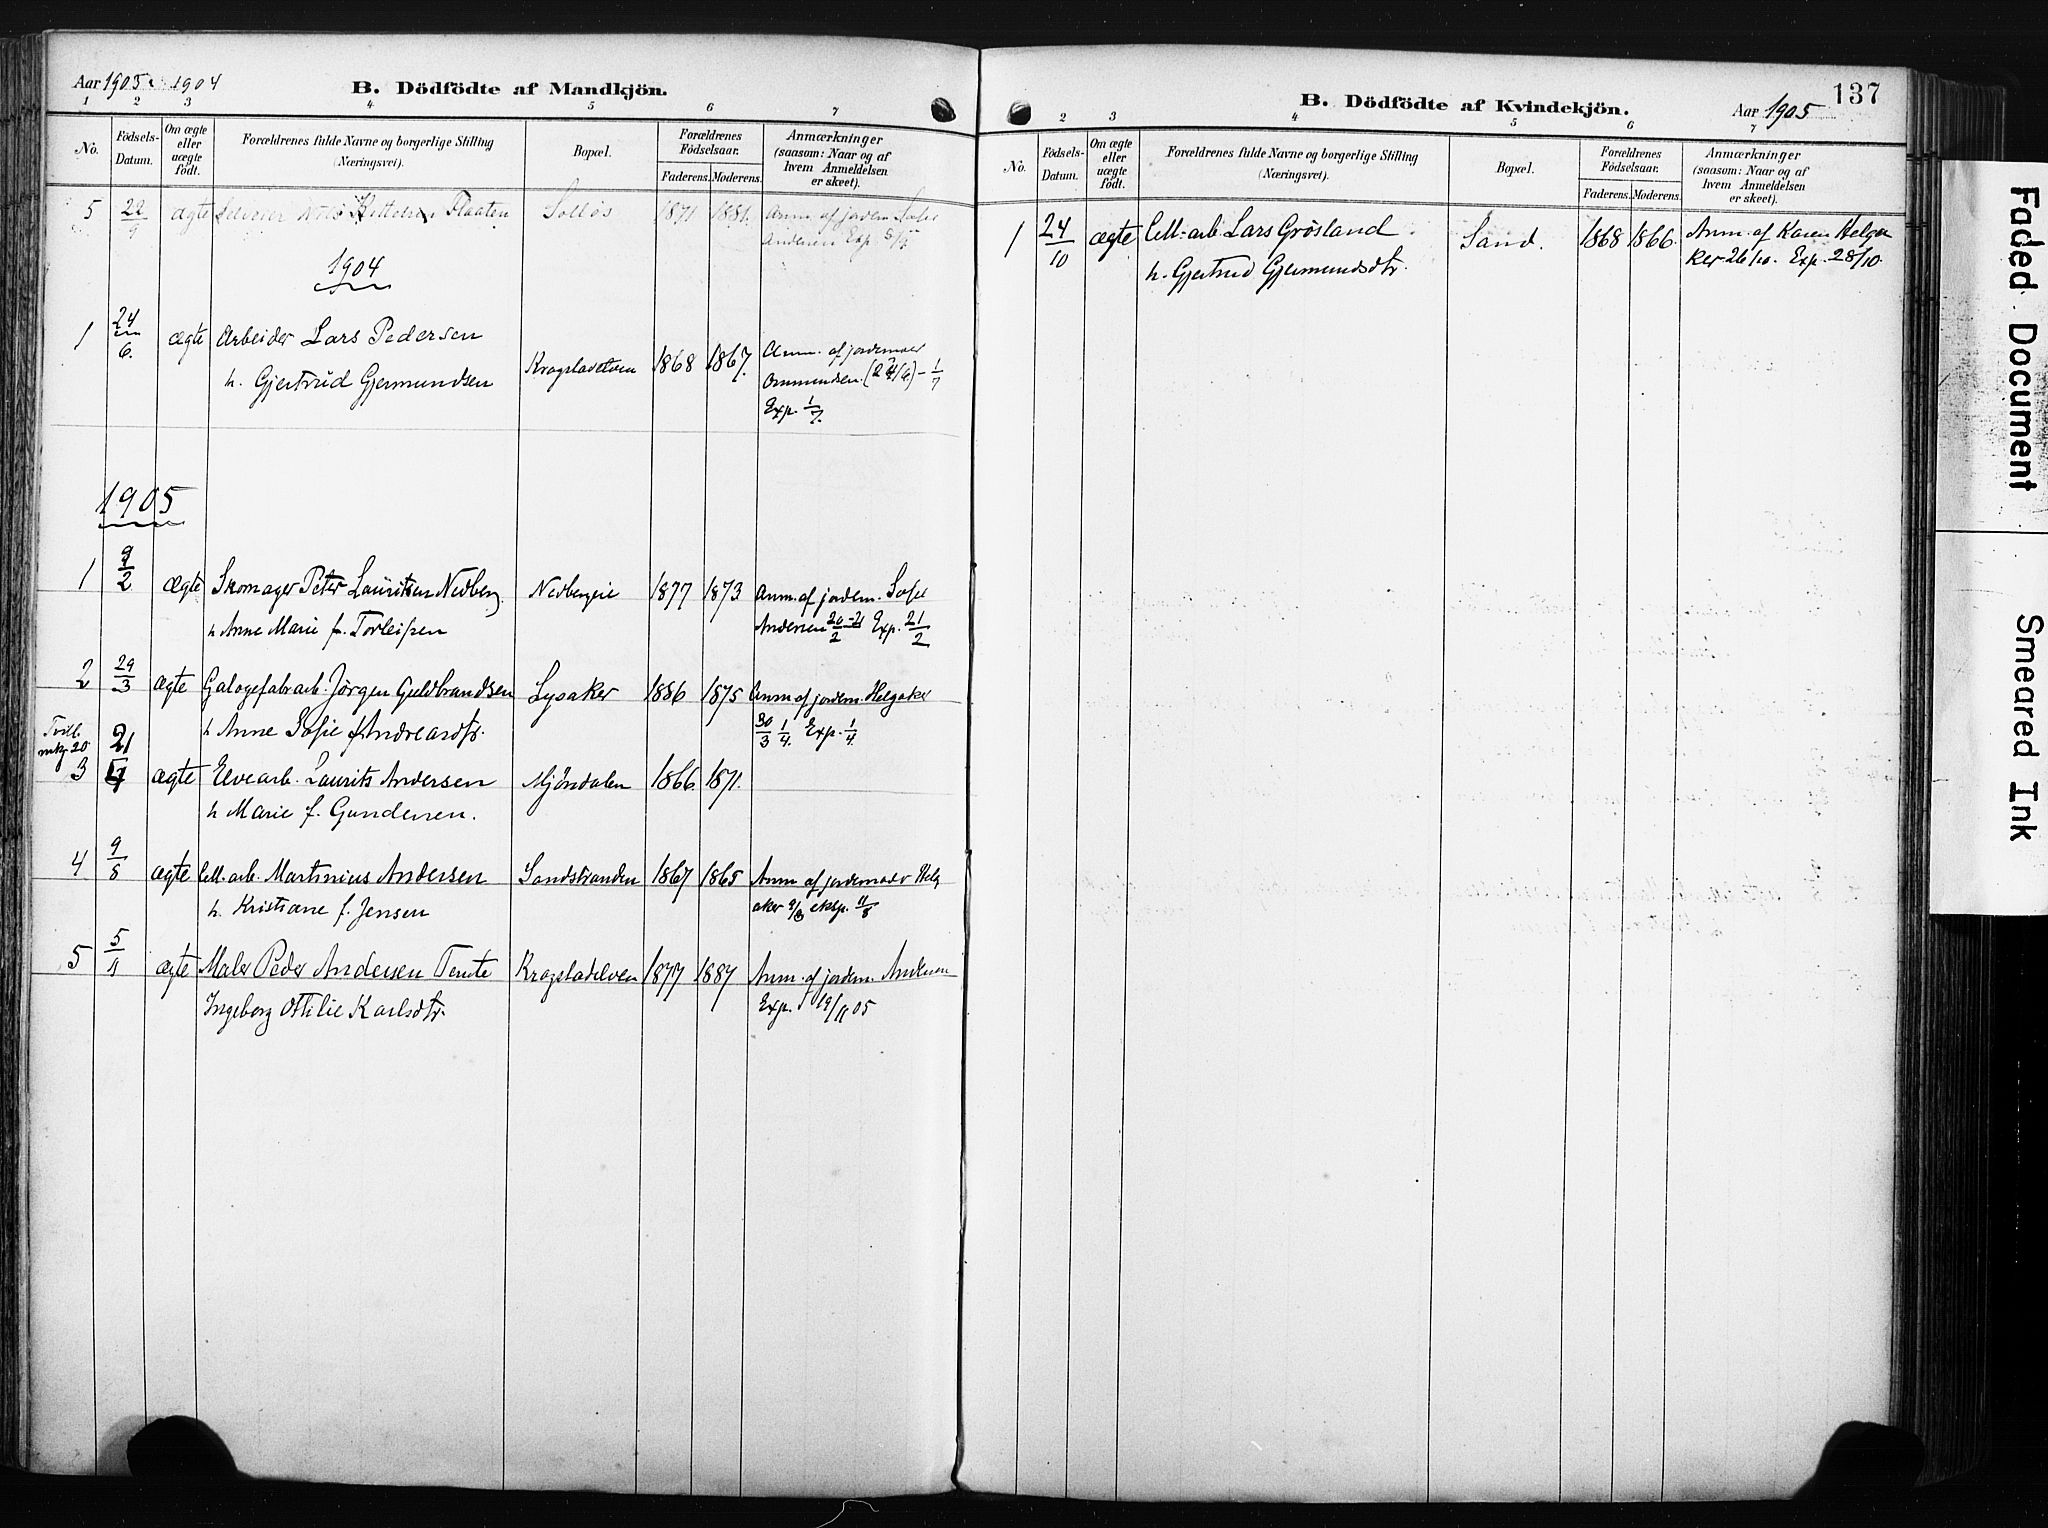 Aar 1905 1904
B. Dödfödte af Mandkjön.
1 2 3 4 5 6 7
No.
Födsels-Datum.
Om ægte eller uægte födt.
Forældrenes fulde Navne og borgerlige Stilling (Næringsvei).
Bopæl.
Forældrenes Födselsaar.
Faderens. Moderens.
Anmærkninger (saasom: Naar og af hvem Anmeldelsen er skeet).
5 22/9 ægte Nils Kittelsen Plaaten Solløs 1871 1881 Anm. af jordem. Sofie
Andersen Exp.
1904
1 24/6. ægte Arbeider Lars Pedersen
h. Gjertrud Gjermundsen Krogstadelven 1868 1867. Anm. af jordemoer
(24/6) - 1/7
Exp. 1/7.
1905
1 9/2 ægte Skomager Peter Lauritsen Nedberg. Nedbergeie 1877 1873 Anm. af jordem. Sofie
h Anne Marie f. Torleifsen Andersen 20-21/2 Exp. 21/2
2 29/3 ægte Galogefabrarb. Jörgen Guldbrandsen Lysaker 1886 1875 Anm af jordem. Helgaker
h Anne Sofie f Andreasdtr. 30/3 1/4. Exp. 1/4.
3 21 ægte Elvearb. Laurits Andersen Mjöndalen 1866 1871.
h Marie f. Gundersen.
4 9/8 ægte Cell. arb. Martinius Andersen Sandstranden 1867 1865 Anm af jordemoder Helg
h. Kristiane f. Jensen aker 9/8 eksp. 11/8
5 5/11 ægte Maler Peder Andersen Temte Krogstadelven 1877 1887 Anm. af jordem. Andersen
Ingeborg Ottilie Karlsdtr. Exp. 19/11 05
137
B. Dödfödte af Kvindekjön.
Aar 1905
2 3 4 5 6 7
No.
Födsels-Datum.
Om ægte eller uægte födt.
Forældrenes fulde Navne og borgerlige Stilling (Næringsvei).
Bopæl.
Forældrenes Födselsaar.
Faderens. Moderens.
Anmærkninger (saasom: Naar og af hvem Anmeldelsen er skeet).
1 24/10 ægte Cell-arb. Lars Grösland Sand. 1868 1866. Anm. af Karen Helga
h. Gjertrud Gjermundsdtr. ker 26/10. Exp. 28/10.
Faded Document
Smeared Ink